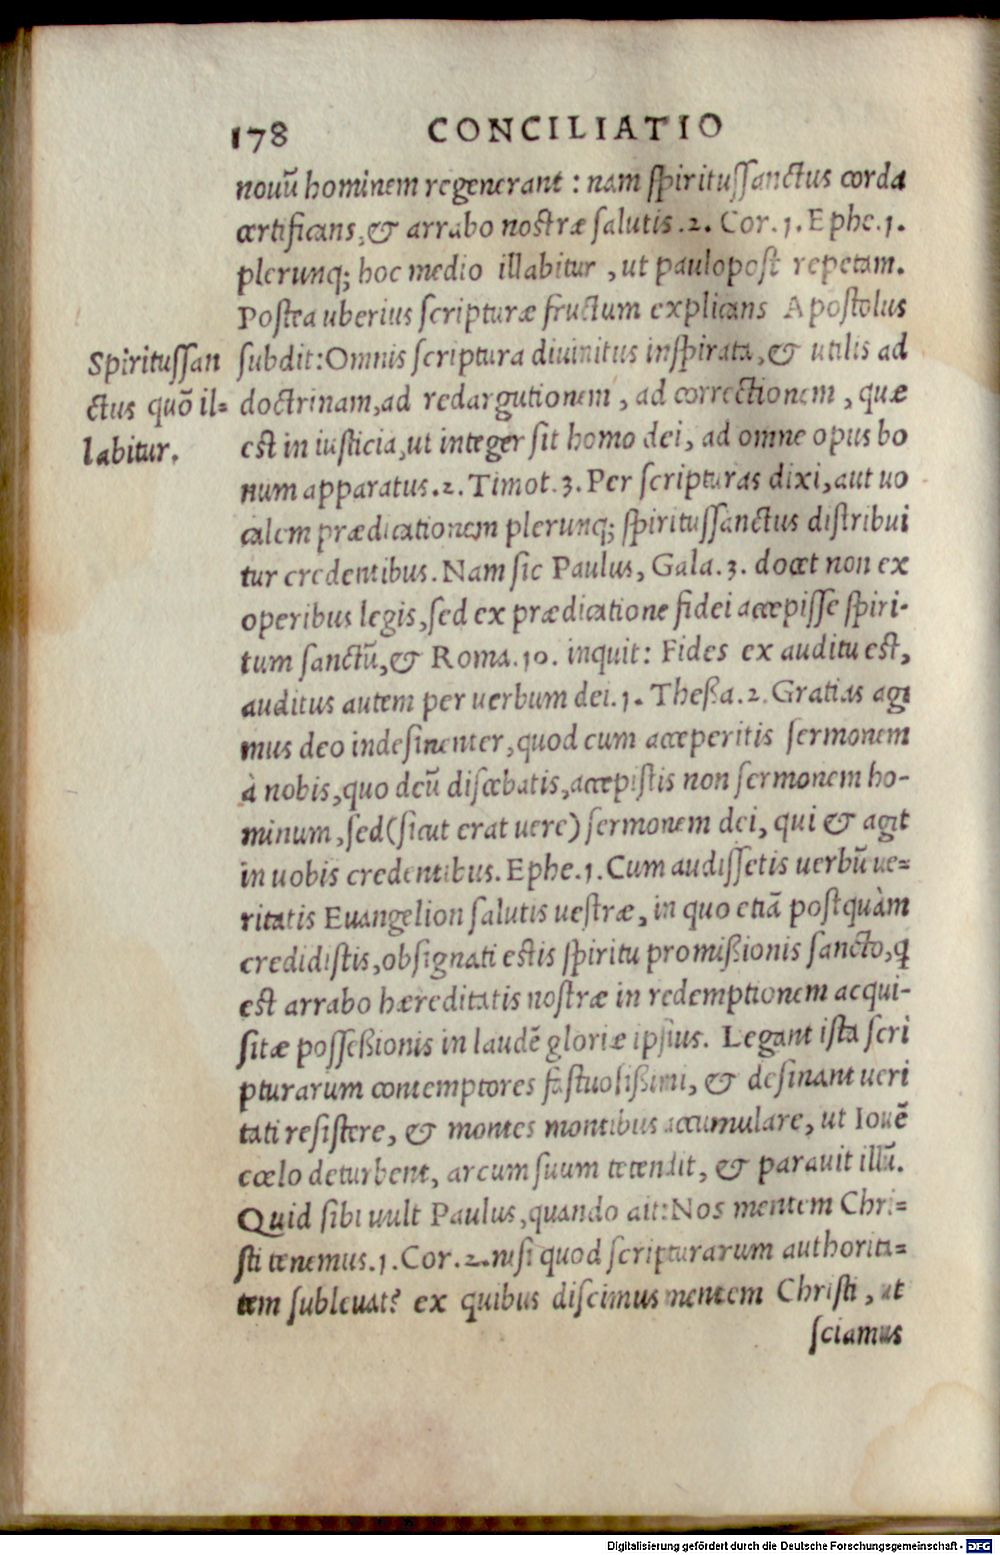 178 CONCILIATIO
nouũ hominem regenerant : nam spiritussanctus corda
certificans, & arrabo nostræ salutis .2. Cor. 1. Ephe. 1.
plerunq; hoc medio illabitur , ut paulopost repetam.
Postea uberius scripturæ fructum explicans Apostolus
subdit: Omnis scriptura diuinitus inspirata, & utilis ad
doctrinam, ad redargutionem , ad correctionem , quæ
est in iusticia, ut integer sit homo dei, ad omne opus bo
num apparatus .2. Timot. 3. Per scripturas dixi, aut uo
calem prædicationem plerunq; spiritussanctus distribui
tur credentibus. Nam sic Paulus, Gala. 3. docet non ex
operibus legis, sed ex prædicatione fidei accepisse spiri-
tum sanctũ, & Roma. 10. inquit: Fides ex auditu est,
auditus autem per uerbum dei. 1. Theßa. 2. Gratias agi
mus deo indesinenter, quod cum acceperitis sermonem
à nobis, quo deũ discebatis, accepistis non sermonem ho-
minum, sed (sicut erat uere) sermonem dei, qui & agit
in uobis credentibus. Ephe. 1. Cum audissetis uerbũ ue-
ritatis Euangelion salutis uestræ, in quo etiã postquàm
credidistis, obsignati estis spiritu promißionis sancto, q
est arrabo hæreditatis nostræ in redemptionem acqui-
sitæ posseßionis in laudẽ gloriæ ipsius. Legant ista scri
pturarum contemptores fastuosißimi, & desinant ueri
tati resistere, & montes montibus accumulare, ut Iouẽ
cœlo deturbent, arcum suum tetendit, & parauit illũ.
Quid sibi uult Paulus, quando ait: Nos mentem Chri-
sti tenemus. 1. Cor. 2. nisi quod scripturarum authorita-
tem subleuat? ex quibus discimus mentem Christi , ut
sciamus
Spiritussan
ctus quõ il-
labitur.
Digitalisierung gefördert durch die Deutsche Forschungsgemeinschaft - DFG